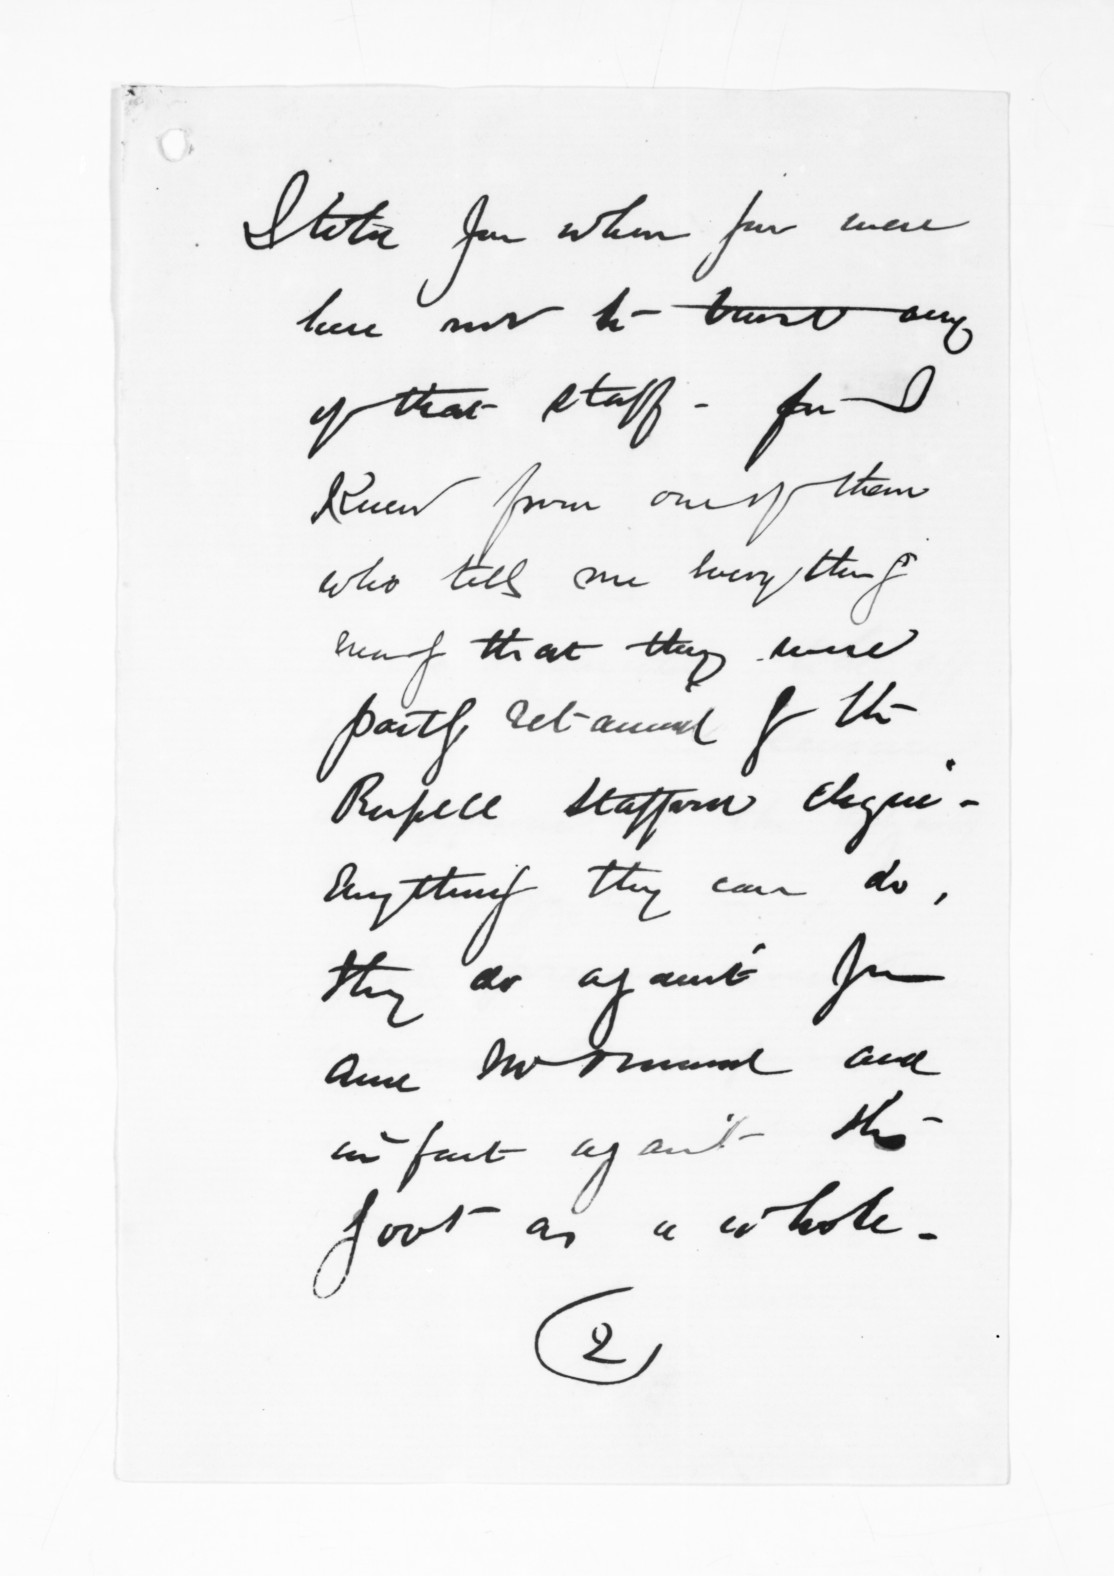 I told you when you were
here not to trust any
of that staff - for I
Knew from one of them
who tells me everything
that they were
partly retained by the
Russell Stafford clique -
Anything they can do,
they do against you
and and
in fact against the
Govt as a whole -
2